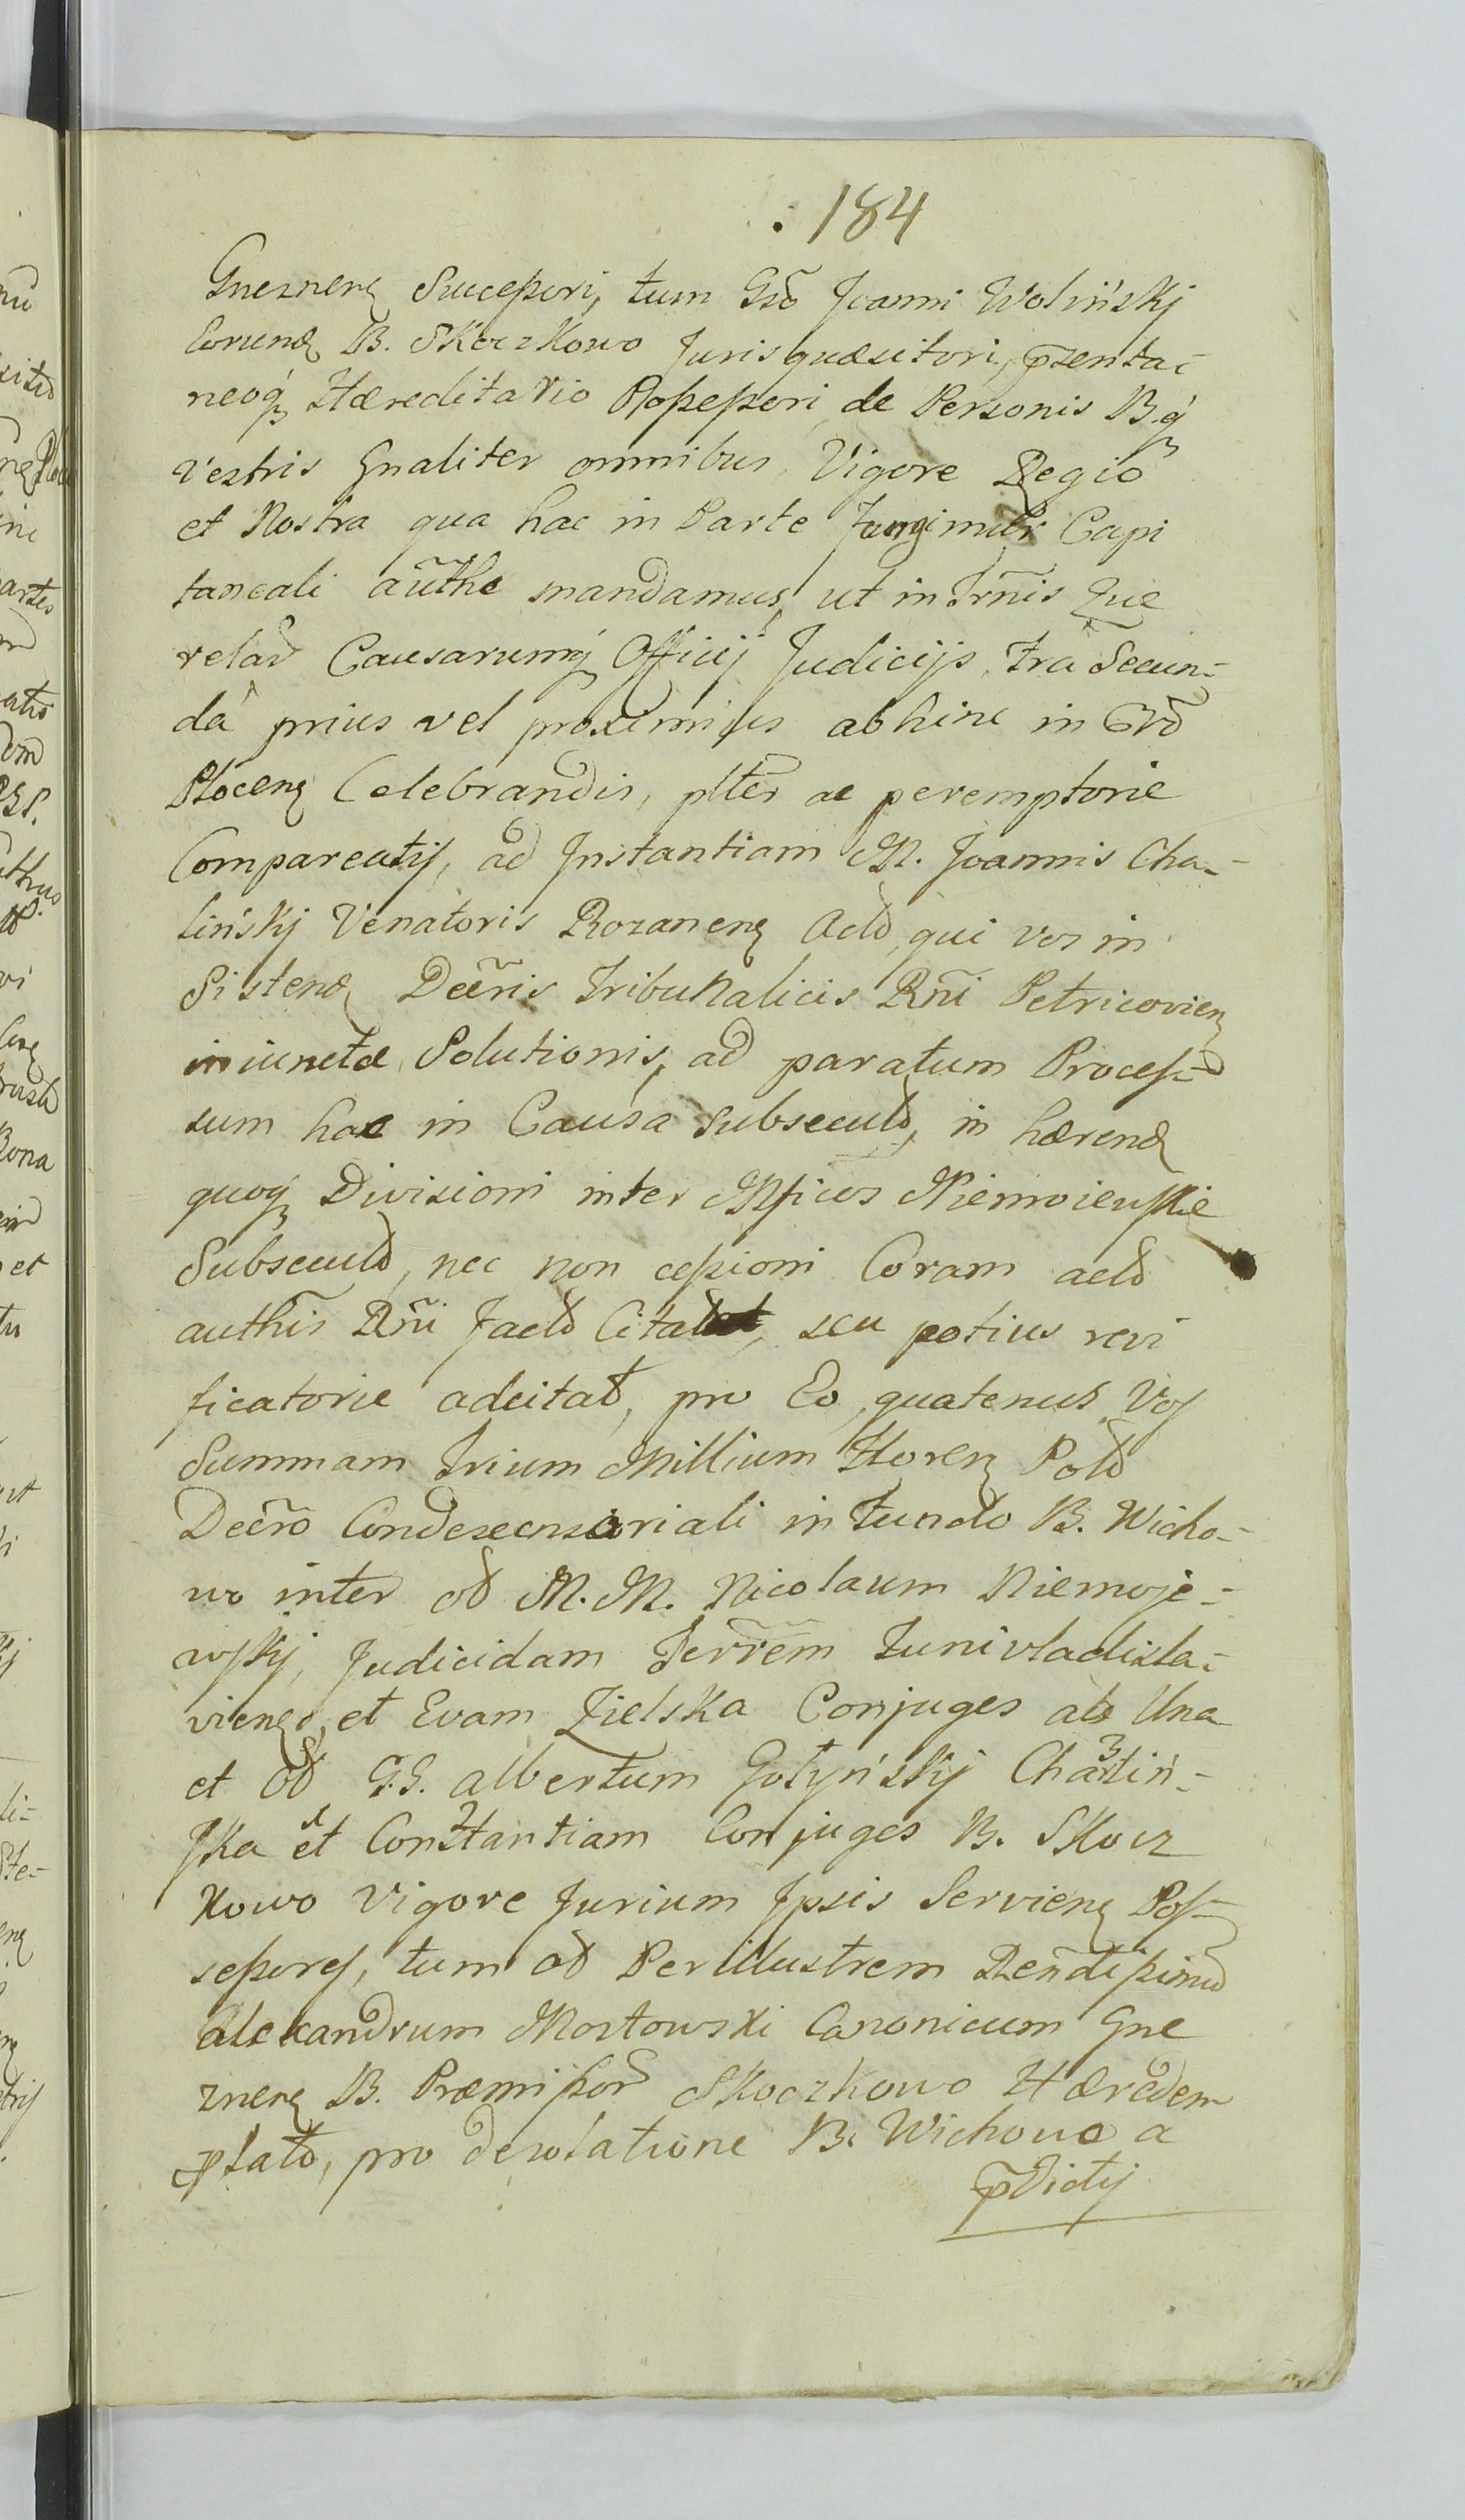 184
Gneznenʒ Succeßori, tum Gso Joanni Wolińskj
Eorundʒ B. Skoczkowo Juris quæsitori, p̃senta-
neoqʒ Hæreditario Poßeßori, de Personis B.qʒ
vestris Gnaliter omnibus, Vigore Regio
et Nostra qua hac in Parte fungimur Capi
taneali aũthe mandamus, ut in Trñis Que
relar Causarumqʒ Officij Judicijs, fra Secun-
da prius vel proximius abhinc in Grõ
Płocenʒ Celebrandis, plter ac peremptorie
Compareatis, ad Instantiam M. Joannis Cha-
lińskj Venatoris Rozanenʒ Actõ, qui vos in
Sistendʒ Decr̃is Tribunalicis Rñi Petricovienʒ
iniunctæ Solutionis, ad paratum Proces-
sum hac in Causa subsecutõ, in hærendʒ
quoqʒ Divisioni inter Mficos Niemoiewskie
Subsecutõ, nec non ceßioni Coram actõ
authis Rñi factõ Citat, seu potius revi
ficatorie adcitat, pro Eo, quatenus Vos
Summam Trium Millium Florenʒ Polõ
Decr̃o Condescensoriali in fundo B. Wicho-
wo inter od M.M. Nicolaum Niemoje-
wskj, Judicidam Terrẽm Junivladisla-
vienʒ, et Evam Zielska Conjuges ab Una
et od G.G. Albertum Gołyńskj Charliń-
ska et Constantiam Conjuges B. Skocz
kowo Vigore Jurium Ipsis Servienʒ Pos-
seßores, tum od Perillustrem Rendißimũ
Alexandrum Mostowski Canonicum Gne
znenʒ B. Præmißor Skoczkowo Hæredem
p̃latõ, pro desolatione B. Wichowo a
p̃dictij